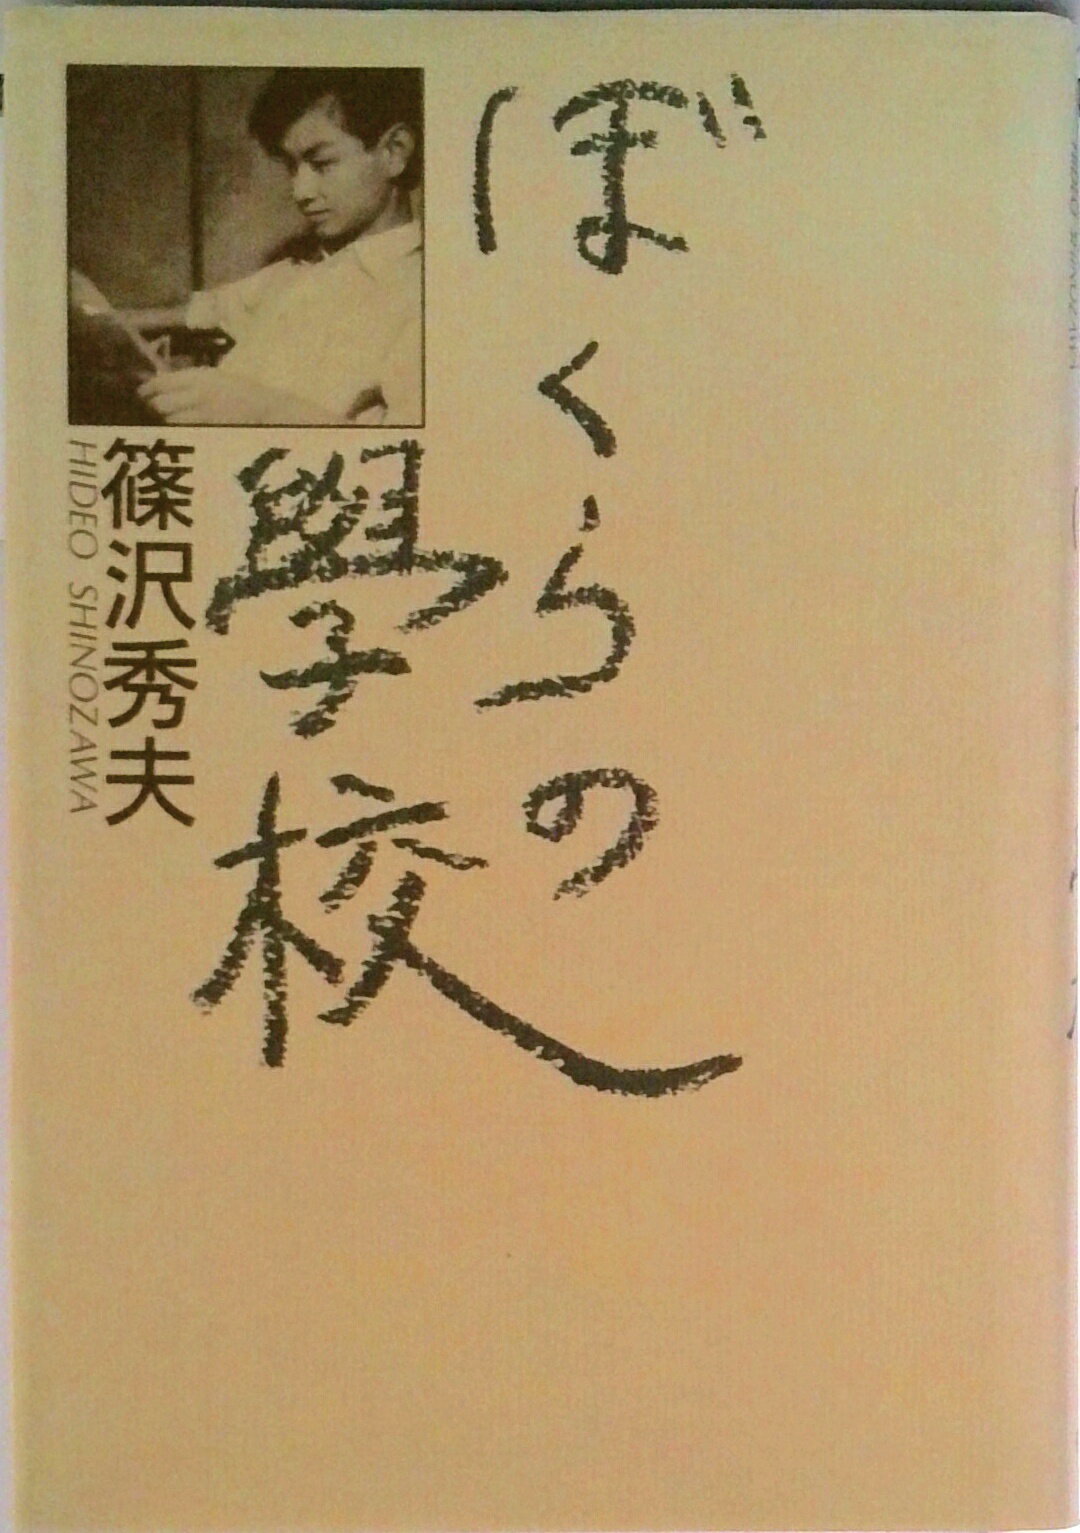 ぼくらの
學校
篠沢秀夫
HIDEO SHINOZAWA